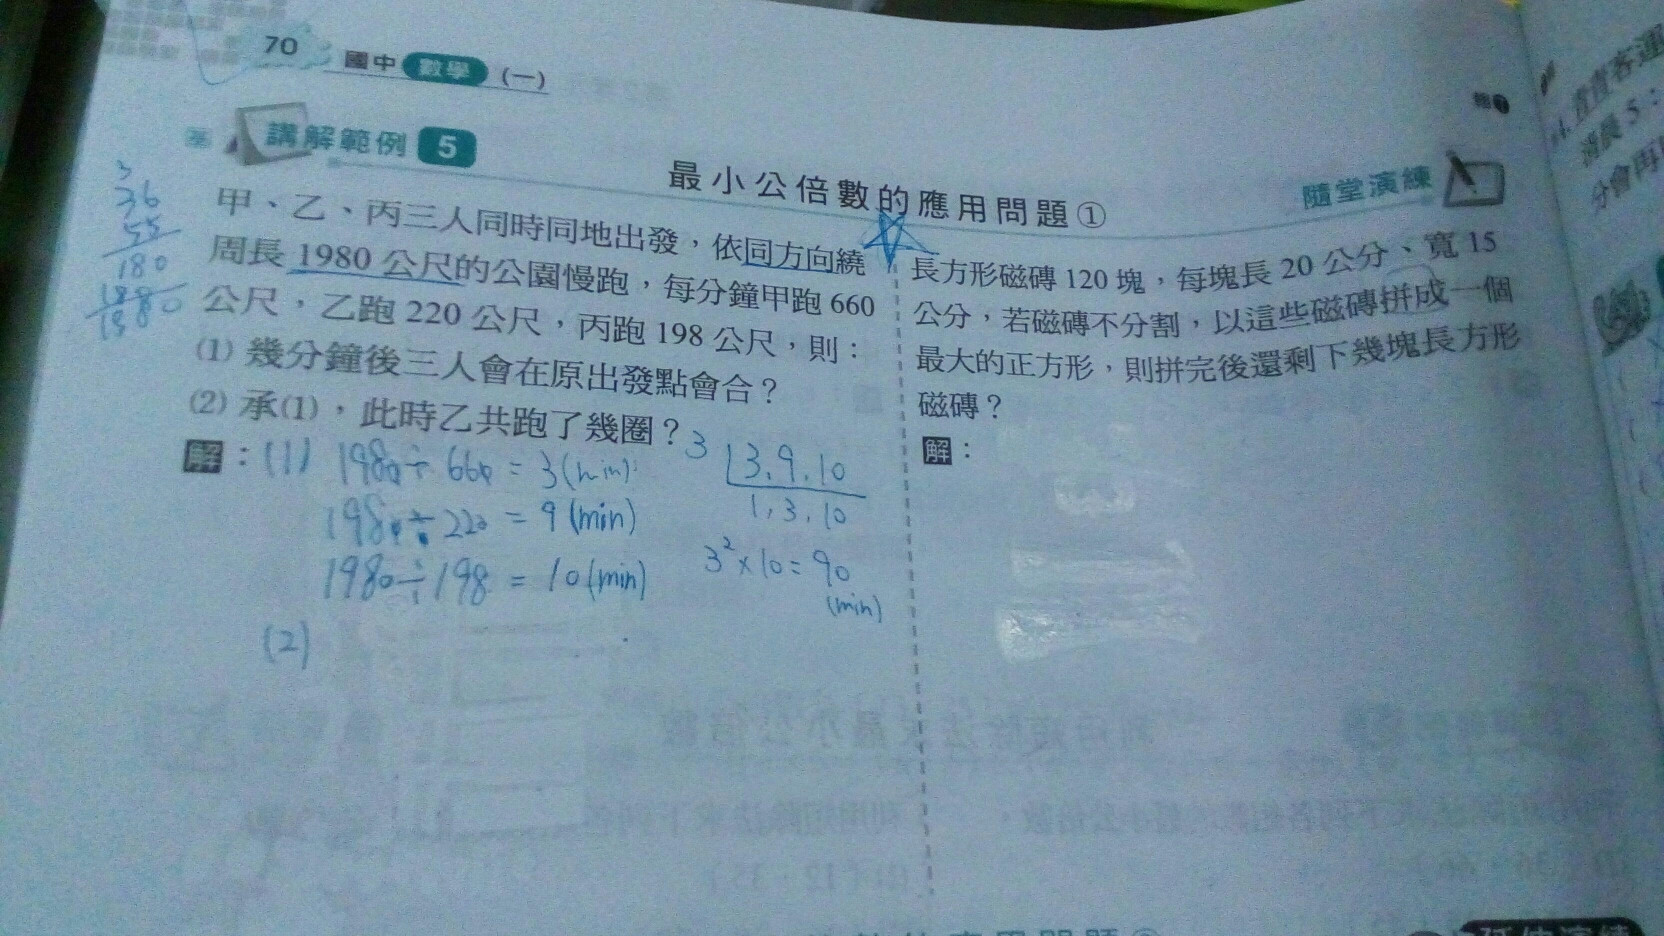 70
國中 數學 (一)
講解範例 5
最小公倍數的應用問題①
隨堂演練
36
55
180
甲、乙、丙三人同時同地出發，依同方向繞
周長 1980 公尺的公園慢跑，每分鐘甲跑 660
公尺，乙跑 220 公尺，丙跑 198 公尺，則：
(1) 幾分鐘後三人會在原出發點會合？
(2) 承(1)，此時乙共跑了幾圈？
解：(1) 1980 ÷ 660 = 3 (min)
1980 ÷ 220 = 9 (min)
1980 ÷ 198 = 10 (min)
3 3, 9, 10
1, 3, 10
3² × 10 = 90
(min)
(2)
長方形磁磚 120 塊，每塊長 20 公分、寬 15
公分，若磁磚不分割，以這些磁磚拼成一個
最大的正方形，則拼完後還剩下幾塊長方形
磁磚？
解：
清晨 5：
分會再
延伸演練